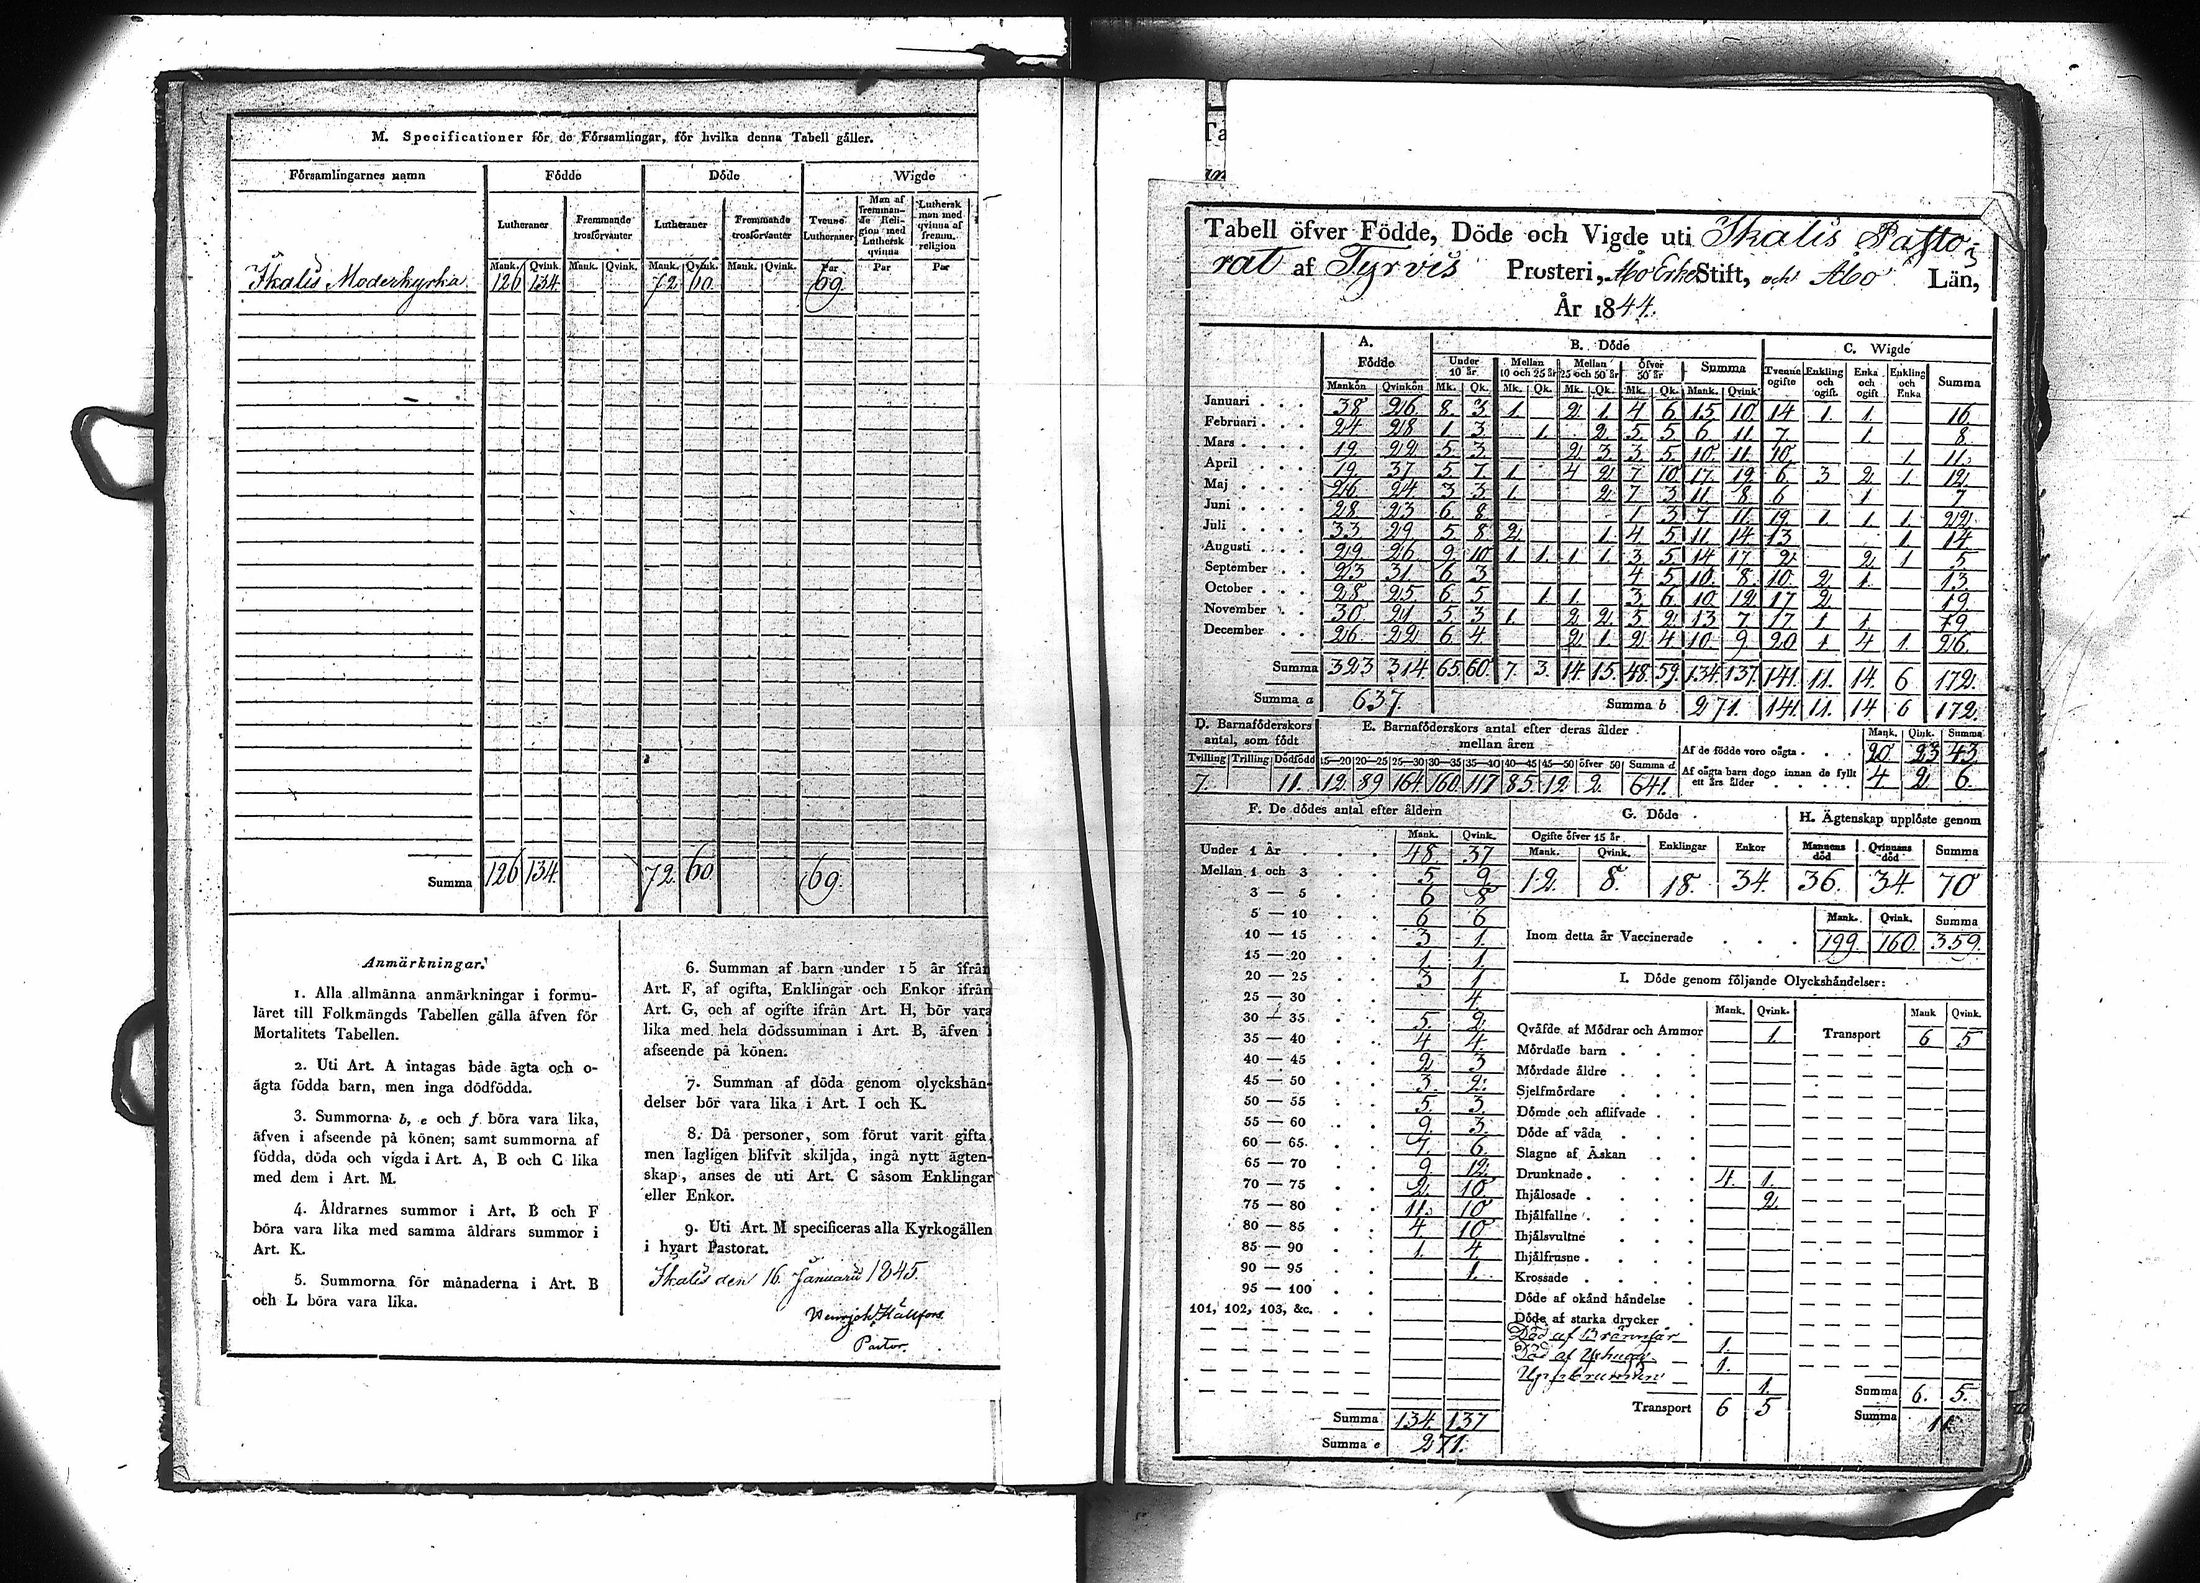 M. Specificationer för de Församlingar, för hvilka denna Tabell gäller.
Församlingarnes namn Födde Döde Wigde
Lutheraner Fremmande trosförvanter Lutheraner Fremmande trosförvanter Tvenne Lutheraner Man af fremmande Religion med Luthersk qvinna Luthersk man med qvinna af fremm. religion
Mank. Qvink. Mank. Qvink. Mank. Qvink. Mank. Qvink. Par Par Par
Ikalis Moderkyrka 126 134 72 60 69
Summa 126 134 72 60 69
Anmärkningar.
1. Alla allmänna anmärkningar i formu-
läret till Folkmängds Tabellen gälla äfven för
Mortalitets Tabellen.
2. Uti Art. A intagas både ägta och o-
ägta födda barn, men inga dödfödda.
3. Summorna b, e och f böra vara lika,
äfven i afseende på könen; samt summorna af
födda, döda och vigda i Art. A, B och C lika
med dem i Art. M.
4. Åldrarnes summor i Art. B och F
böra vara lika med samma åldrars summor i
Art. K.
5. Summorna för månaderna i Art. B
och L böra vara lika.
6. Summan af barn under 15 år ifrån
Art. F, af ogifta, Enklingar och Enkor ifrån
Art. G, och af ogifte ifrån Art. H, bör vara
lika med hela dödssumman i Art. B, äfven i
afseende på könen.
7. Summan af döda genom olyckshän-
delser bör vara lika i Art. I och K.
8. Då personer, som förut varit gifta,
men lagligen blifvit skiljda, ingå nytt ägten-
skap, anses de uti Art. C såsom Enklingar
eller Enkor.
9. Uti Art. M specificeras alla Kyrkogällen
i hvart Pastorat.
Ikalis den 16 Januarii 1845.
Pastor.
Tabell öfver Födde, Döde och Vigde uti Ikalis Pasto-
rat af Tyrvis Prosteri, Åbo Erke Stift, och Åbo Län,
År 1844.
A. Födde B. Döde C. Wigde
Under 10 år Mellan 10 och 25 år Mellan 25 och 50 år Öfver 50 år Summa Tvenne ogifte Enkling och ogift. Enka och ogift Enkling och Enka Summa
Mankön Qvinkön Mk. Qk. Mk. Qk. Mk. Qk. Mk. Qk. Mank. Qvink.
Januari 38 26 8 3 1 2 1 4 6 15 10 14 1 1 16
Februari 24 28 1 3 1 2 5 5 6 11 7 1 8
Mars 19 22 5 3 2 3 3 5 10 11 10 1 11
April 19 37 5 7 1 4 2 7 10 17 19 6 3 2 1 12
Maj 26 24 3 3 1 2 7 3 11 8 6 1 7
Juni 28 23 6 8 1 3 7 11 19 1 1 1 22
Juli 33 29 5 8 2 1 4 5 11 14 13 1 14
Augusti 29 26 9 10 1 1 1 1 3 5 14 17 2 2 1 5
September 23 31 6 3 4 5 10 8 10 2 1 13
October 28 25 6 5 1 1 3 6 10 12 17 2 19
November 30 21 5 3 1 2 2 5 2 13 7 17 1 1 19
December 26 22 6 4 2 1 2 4 10 9 20 1 4 1 26
Summa 323 314 65 60 7 3 14 15 48 59 134 137 141 11 14 6 172
Summa a 637 Summa b 271 141 11 14 6 172
D. Barnaföderskors antal, som födt
Tvilling Trilling Dödfödd
7 11
E. Barnaföderskors antal efter deras ålder mellan åren
15—20 20—25 25—30 30—35 35—40 40—45 45—50 öfver 50 Summa d
12 89 164 160 117 85 12 2 641
Mank. Qink. Summa
Af de födde voro oägta 20 23 43
Af oägta barn dogo innan de fyllt ett års ålder 4 2 6
F. De dödes antal efter åldern
Mank. Qvink.
Under 1 År 48 37
Mellan 1 och 3 5 9
3 — 5 6 8
5 — 10 6 6
10 — 15 3 1
15 — 20 1 1
20 — 25 3 1
25 — 30 4
30 — 35 5 2
35 — 40 4 4
40 — 45 2 3
45 — 50 3 2
50 — 55 5 3
55 — 60 9 3
60 — 65 7 6
65 — 70 9 12
70 — 75 2 10
75 — 80 11 10
80 — 85 4 10
85 — 90 1 4
90 — 95 1
95 — 100
101, 102, 103, &c.
Summa 134 137
Summa e 271
G. Döde
Ogifte öfver 15 år Enklingar Enkor
Mank. Qvink.
12 8 18 34
H. Ägtenskap upplöste genom
Mannens död Qvinnans död Summa
36 34 70
Mank. Qvink. Summa
Inom detta år Vaccinerade 199 160 359
I. Döde genom följande Olyckshändelser:
Mank. Qvink. Mank Qvink.
Qväfde af Mödrar och Ammor 1 Transport 6 5
Mördade barn
Mördade äldre
Sjelfmördare
Dömde och aflifvade
Döde af våda
Slagne af Åskan
Drunknade 4 1
Ihjälosade 2
Ihjälfallne
Ihjälsvultne
Ihjälfrusne
Krossade
Döde af okänd händelse
Döde af starka drycker
Död af Brännsår 1
Död af 1
1
Transport 6 5 Summa 6 5
Summa 11